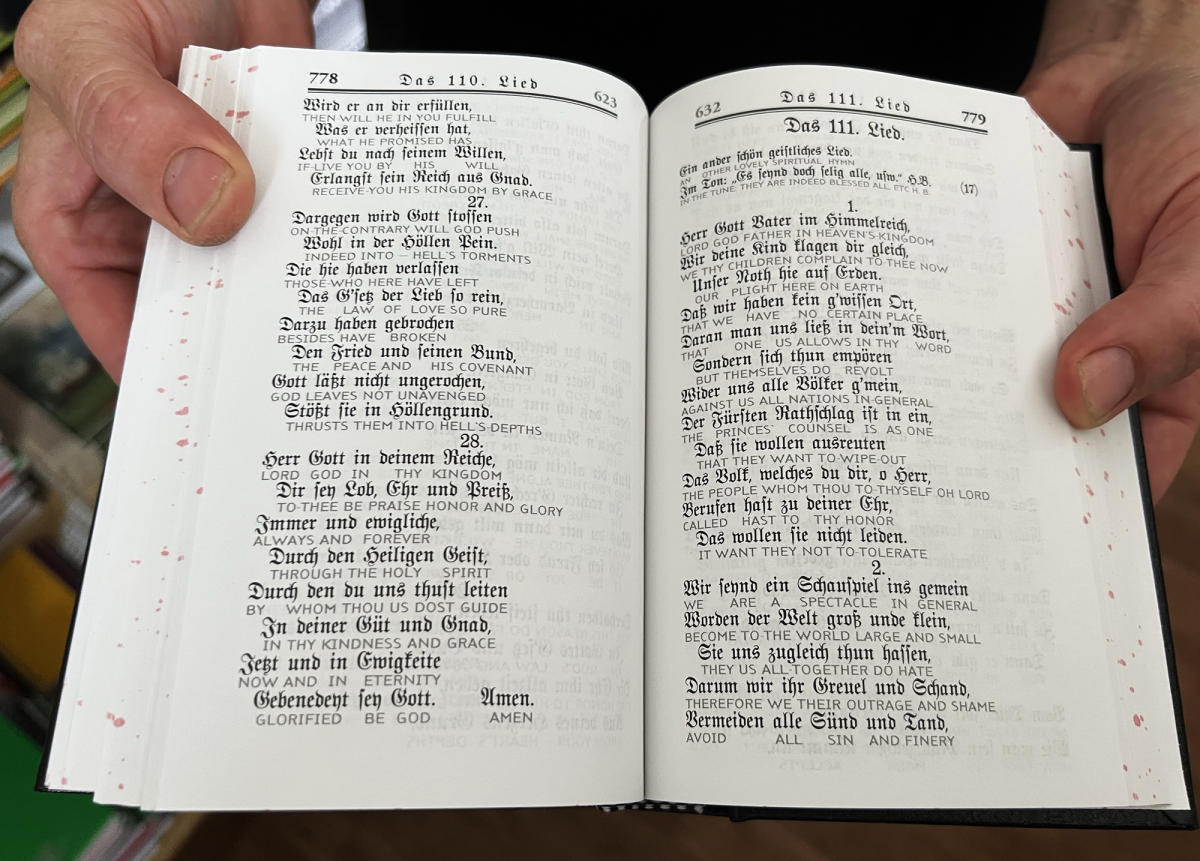 778 Das 110. Lied 623
Wird er an dir erfüllen,
THEN WILL HE IN YOU FULFILL
Was er verheissen hat,
WHAT HE PROMISED HAS
Lebst du nach seinem Willen,
IF LIVE YOU BY HIS WILL
Erlangst sein Reich aus Gnad.
RECEIVE YOU HIS KINGDOM BY GRACE
27.
Dargegen wird Gott stossen
ON-THE-CONTRARY WILL GOD PUSH
Wohl in der Höllen Pein.
INDEED INTO – HELL'S TORMENTS
Die hie haben verlassen
THOSE WHO HERE HAVE LEFT
Das G'setz der Lieb so rein,
THE LAW OF LOVE SO PURE
Darzu haben gebrochen
BESIDES HAVE BROKEN
Den Fried und seinen Bund,
THE PEACE AND HIS COVENANT
Gott läßt nicht ungerochen,
GOD LEAVES NOT UNAVENGED
Stößt sie in Höllengrund.
THRUSTS THEM INTO HELL'S-DEPTHS
28.
Herr Gott in deinem Reiche,
LORD GOD IN THY KINGDOM
Dir sey Lob, Ehr und Preiß,
TO-THEE BE PRAISE HONOR AND GLORY
Immer und ewigliche,
ALWAYS AND FOREVER
Durch den Heiligen Geist,
THROUGH THE HOLY SPIRIT
Durch den du uns thust leiten
BY WHOM THOU US DOST GUIDE
In deiner Güt und Gnad,
IN THY KINDNESS AND GRACE
Jetzt und in Ewigkeite
NOW AND IN ETERNITY
Gebenedeyt sey Gott. Amen.
GLORIFIED BE GOD AMEN
632 Das 111. Lied 779
Das 111. Lied.
Ein ander schön geistliches Lied.
AN OTHER LOVELY SPIRITUAL HYMN
Im Ton: „Es seynd doch selig alle, usw.“ H.B. (17)
IN THE TUNE: THEY ARE INDEED BLESSED ALL, ETC H. B.
1.
Herr Gott Vater im Himmelreich,
LORD GOD FATHER IN HEAVEN'S-KINGDOM
Wir deine Kind klagen dir gleich,
WE THY CHILDREN COMPLAIN TO THEE NOW
Unser Noth hie auf Erden.
OUR PLIGHT HERE ON EARTH
Daß wir haben kein g'wissen Ort,
THAT WE HAVE NO CERTAIN PLACE
Daran man uns ließ in dein'm Wort,
THAT ONE US ALLOWS IN THY WORD
Sondern sich thun empören
BUT THEMSELVES DO REVOLT
Wider uns alle Völker g'mein,
AGAINST US ALL NATIONS IN-GENERAL
Der Fürsten Rathschlag ist in ein,
THE PRINCES' COUNSEL IS AS ONE
Daß sie wollen ausreuten
THAT THEY WANT TO-WIPE-OUT
Das Volk, welches du dir, o Herr,
THE PEOPLE WHOM THOU TO-THYSELF OH LORD
Berufen hast zu deiner Ehr,
CALLED HAST TO THY HONOR
Das wollen sie nicht leiden.
IT WANT THEY NOT TO-TOLERATE
2.
Wir seynd ein Schauspiel ins gemein
WE ARE A SPECTACLE IN GENERAL
Worden der Welt groß unde klein,
BECOME TO-THE WORLD LARGE AND SMALL
Sie uns zugleich thun hassen,
THEY US ALL-TOGETHER DO HATE
Darum wir ihr Greuel und Schand,
THEREFORE WE THEIR OUTRAGE AND SHAME
Vermeiden alle Sünd und Tand,
AVOID ALL SIN AND FINERY